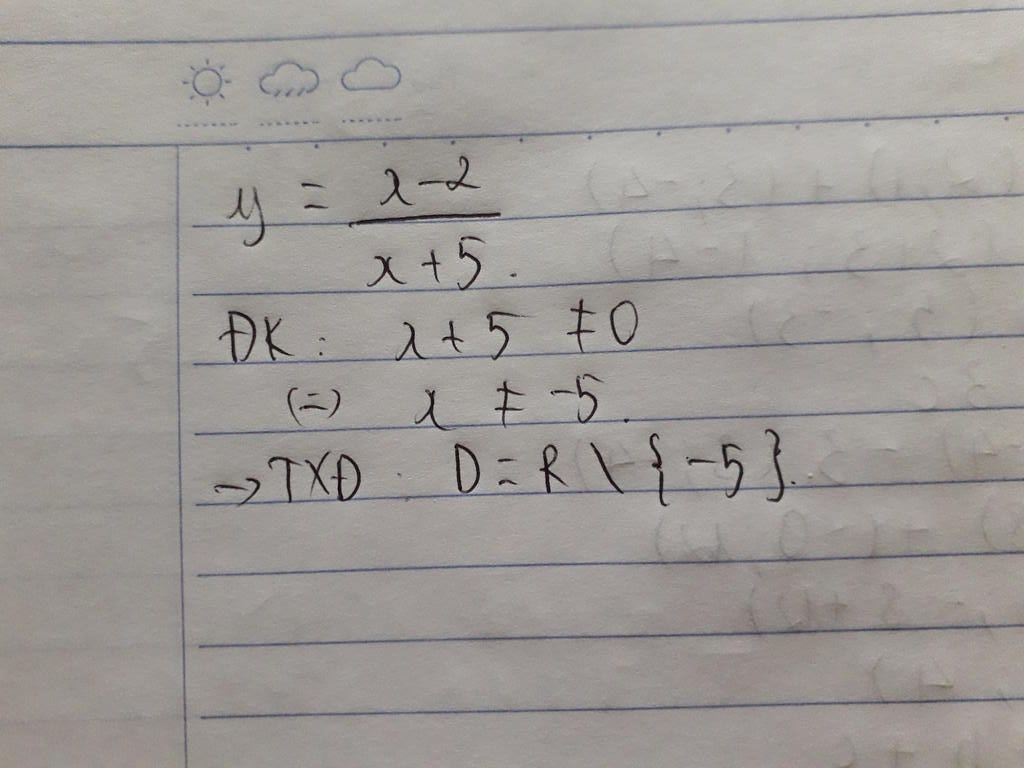 y = x-2
x+5.
ĐK: x+5 ≠0
(=) x ≠ -5.
→TXĐ. D=R\{-5}.